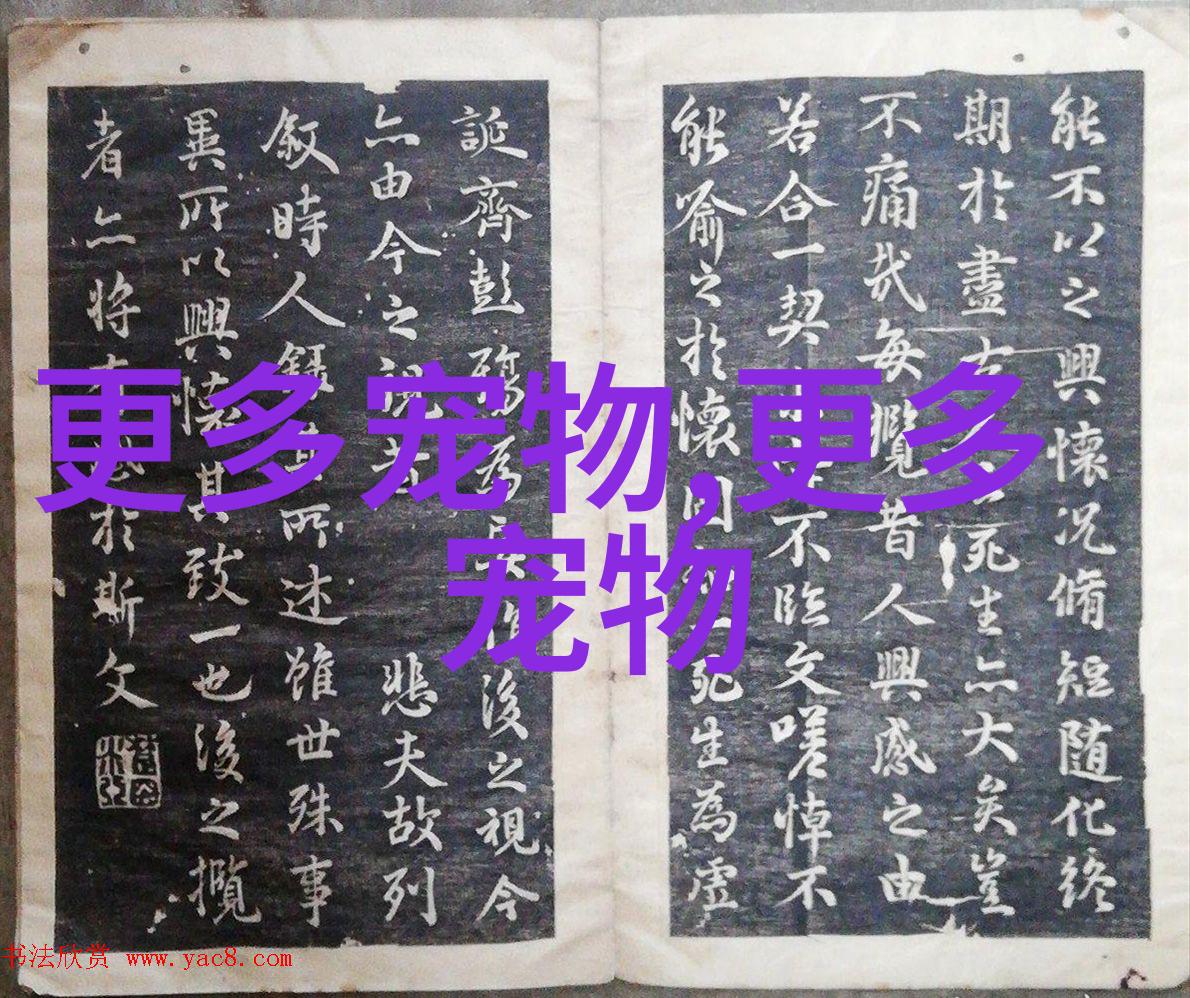 能不以之興懷況脩短随化終
期於盡古死生亦大矣豈
不痛哉每攬昔人興感之由
若合一契不臨文嗟悼不
能喻之於懷固一死生為虛
誕齊彭殤為妄作後之視今
亦由今之視昔悲夫故列
叙時人録其所述雖世殊事
異所以興懷其致一也後之攬
者亦將有感於斯文
更多宠物,更多
宠物
书法欣赏 www.yac8.com